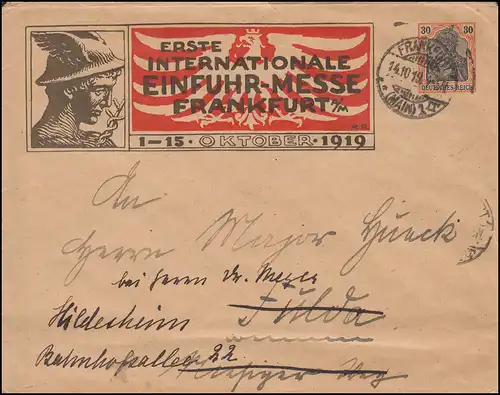 ERSTE
INTERNATIONALE
EINFUHR-MESSE
FRANKFURT a/M
1–15 · OKTOBER · 1919
30 30
DEUTSCHES REICH
FRANKFURT
14.10.19
(MAIN) 1
An
Herrn Major Hueck
bei Herrn Dr. Meyer
Fulda
Hildesheim
Bahnhofsallee 22
Weg